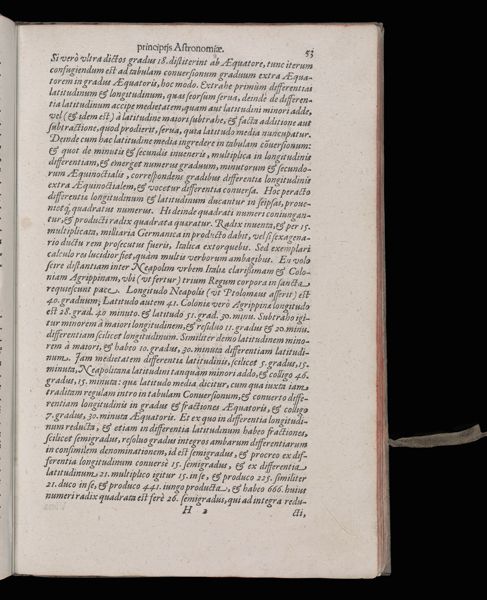 principijs Astronomiæ.
53
Si verò vltra dictos gradus 18. distiterint ab Æquatore, tunc iterum
confugiendum est ad tabulam conuersionum graduum extra Æqua-
torem in gradus Æquatoris, hoc modo. Extrahe primùm differentias
latitudinum & longitudinum, quas seorsum serua, deinde de differen-
tia latitudinum accipe medietatem, quam aut latitudini minori adde,
vel (& idem est) à latitudine maiori subtrahe, & facta additione aut
subtractione, quod prodierit, serua, quia latitudo media nuncupatur.
Deinde cum hac latitudine media ingredere in tabulam cōuersionum:
& quot de minutis & secundis inueneris, multiplica in longitudinis
differentiam, & emerget numerus graduum, minutorum & secundo-
rum Æquinoctialis, correspondens gradibus differentia longitudinis
extra Æquinoctialem, & vocetur differentia conuersa. Hoc peracto
differentia longitudinum & latitudinum ducantur in seipsas, proue-
nietq́; quadratus numerus. Hi deinde quadrati numeri coniungan-
tur, & producti radix quadrata quæratur. Radix inuenta, & per 15.
multiplicata, milliaria Germanica in producto dabit, vel si sexagena-
rio ductu rem prosecutus fueris, Italica extorquebis. Sed exemplari
calculo res lucidior fiet, quàm multis verborum ambagibus. En volo
scire distantiam inter Neapolim vrbem Italia clarissimam & Colo-
niam Agrippinam, vbi (vt fertur) trium Regum corpora in sancta
requiescunt pace. Longitudo Neapolis (vt Ptolomæus asserit) est
40. graduum; Latitudo autem 41. Coloniæ verò Agrippinæ longitudo
est 28. grad. 40 minuto. & latitudo 51. grad. 30. minu. Subtraho igi-
tur minorem à maiori longitudinem, & residuo 11. gradus & 20. minu.
differentiam scilicet longitudinum. Similiter demo latitudinem mino-
rem à maiori, & habeo 10. gradus, 30. minuta differentiam latitudi-
num. Jam medietatem differentia latitudinis, scilicet 5. gradus, 15.
minuta, Neapolitana latitudini tanquàm minori addo, & colligo 46.
gradus, 15. minuta: quæ latitudo media dicitur, cum qua iuxta iam
traditam regulam intro in tabulam Conuersionum, & conuerto diffe-
rentiam longitudinis in gradus & fractiones Æquatoris, & colligo
7. gradus, 30. minuta Æquatoris. Et ex quo in differentia longitudi-
num reducta, & etiam in differentia latitudinum habeo fractiones,
scilicet semigradus, resoluo gradus integros ambarum differentiarum
in consimilem denominationem, id est semigradus, & procreo ex dif-
ferentia longitudinum conuersè 15. semigradus, & ex differentia
latitudinum 21. multiplico igitur 15. in se, & produco 225. similiter
21. duco in se, & produco 441. iungo producta, & habeo 666. huius
numeri radix quadrata est ferè 26. semigradus, qui ad integra redu-
H 2
cti,